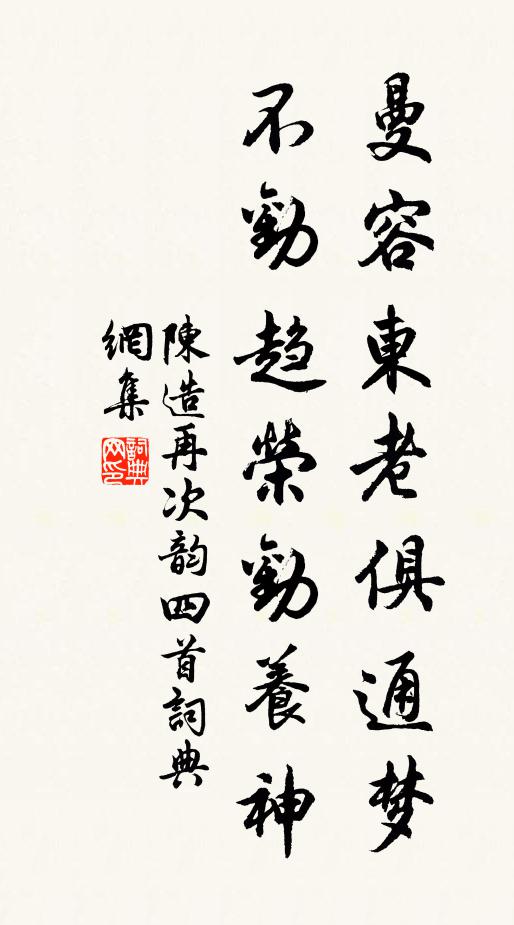 曼容東老俱通梦
不勸趋榮勸養神
陳造再次韵四首詞典
網集
詞典网印